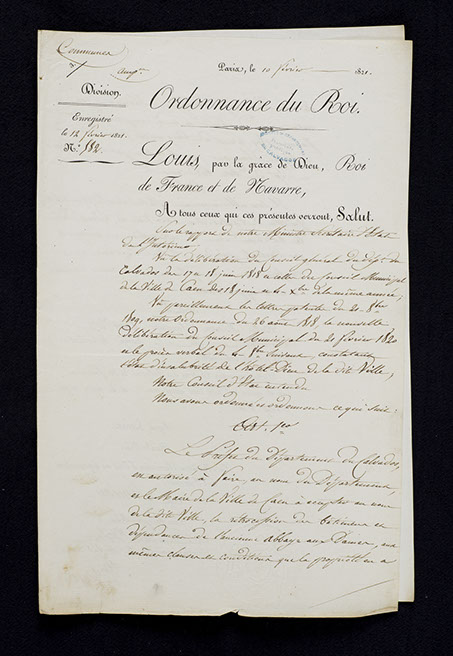 Communes
Paris, le 10 février 1821.
Division.
Ordonnance du Roi.
Enregistré
le 12 février 1821.
N.º 182
Louis, par la grâce de Dieu, Roi
de France et de Navarre,
A tous ceux qui ces présentes verront, Salut.
Sur le rapport de notre Ministre Secrétaire d'Etat
de l'Intérieur
Vu la délibération du Conseil général du Dép.t du
Calvados du 17 18 juin 1818 et celle du Conseil Municipal
de la Ville de Caen des 18 juin et 4 X.bre de la même année,
Vu pareillement les lettres patentes du 20 8.bre
notre Ordonnance du 26 août 1818, la nouvelle
délibération du Conseil Municipal du 20 février 1820
et le procès verbal du 4 8.bre suivant, constatant
l'état de l'hôtel Dieu de la dite Ville,
Notre Conseil d'Etat entendu
Nous avons ordonné et ordonnons ce qui suit:
Art. 1.er
Le Préfet du Département du Calvados,
est autorisé à faire, au nom du Département,
et le Maire de la Ville de Caen à accepter au nom
de la dite Ville, la rétrocession des bâtimens et
dépendances de l'ancienne abbaye aux Dames, aux
mêmes clauses et conditions que la propriété en a